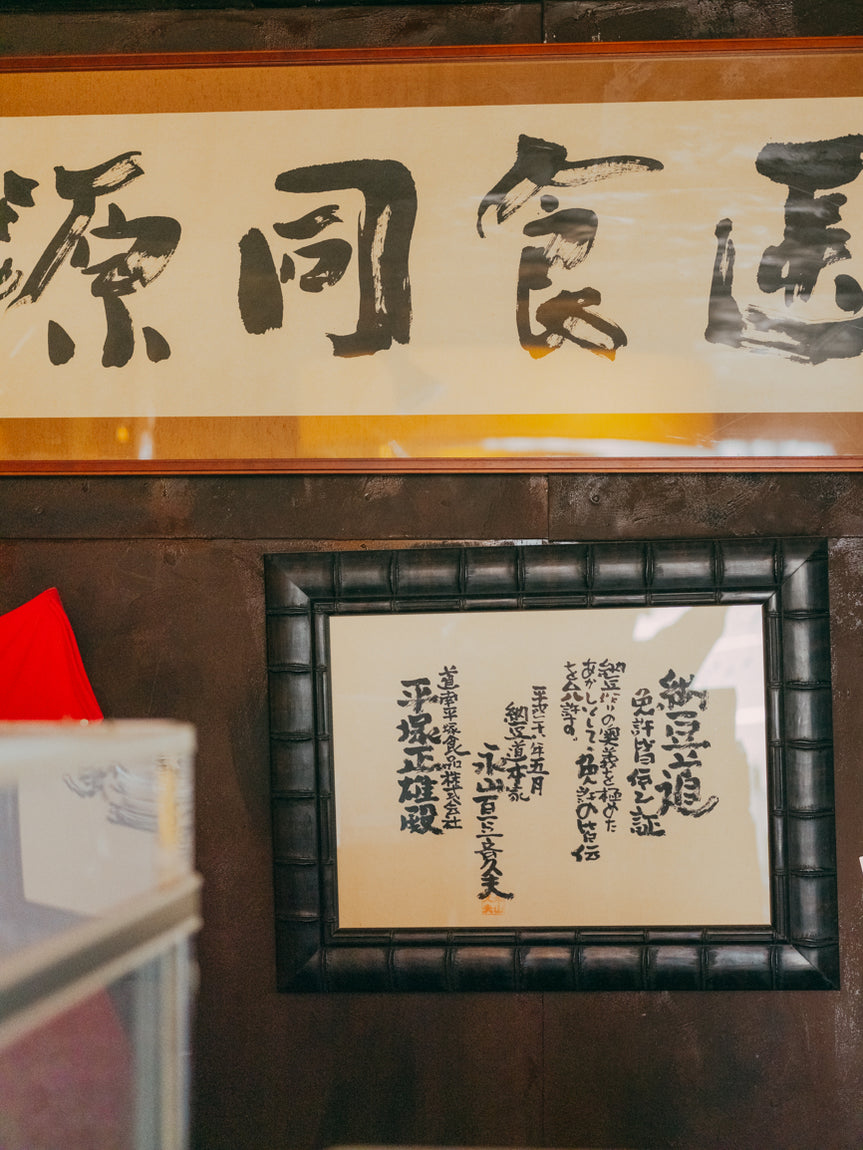 医食同源
納豆道
免許皆伝之証
納豆作りの奥義を極めた
あかしとして、免許の皆伝
許す。
平成年五月
納豆道本家
永山久夫
道南平塚食品株式会社
平塚正雄殿